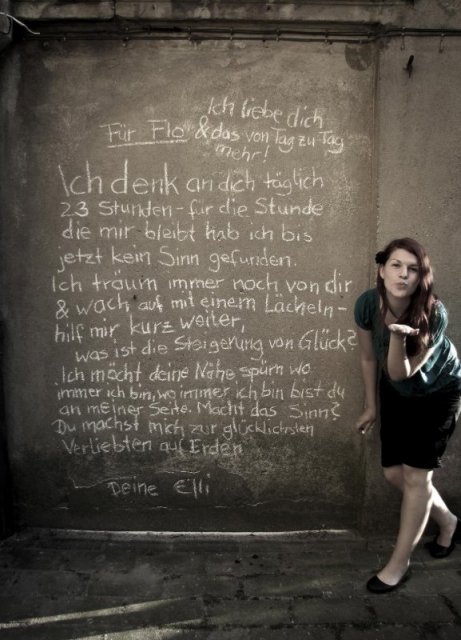 Für Flo
Ich liebe dich
& das von Tag zu Tag
mehr!
Ich denk an dich täglich
23 Stunden - für die Stunde
die mir bleibt hab ich bis
jetzt kein Sinn gefunden.
Ich träum immer noch von dir
& wach auf mit einem Lächeln -
hilf mir kurz weiter,
was ist die Steigerung von Glück?
Ich möcht deine Nähe spürn wo
immer ich bin, wo immer ich bin bist du
an meiner Seite. Macht das Sinn?
Du machst mich zur glücklichsten
Verliebten auf Erden
Deine Elli